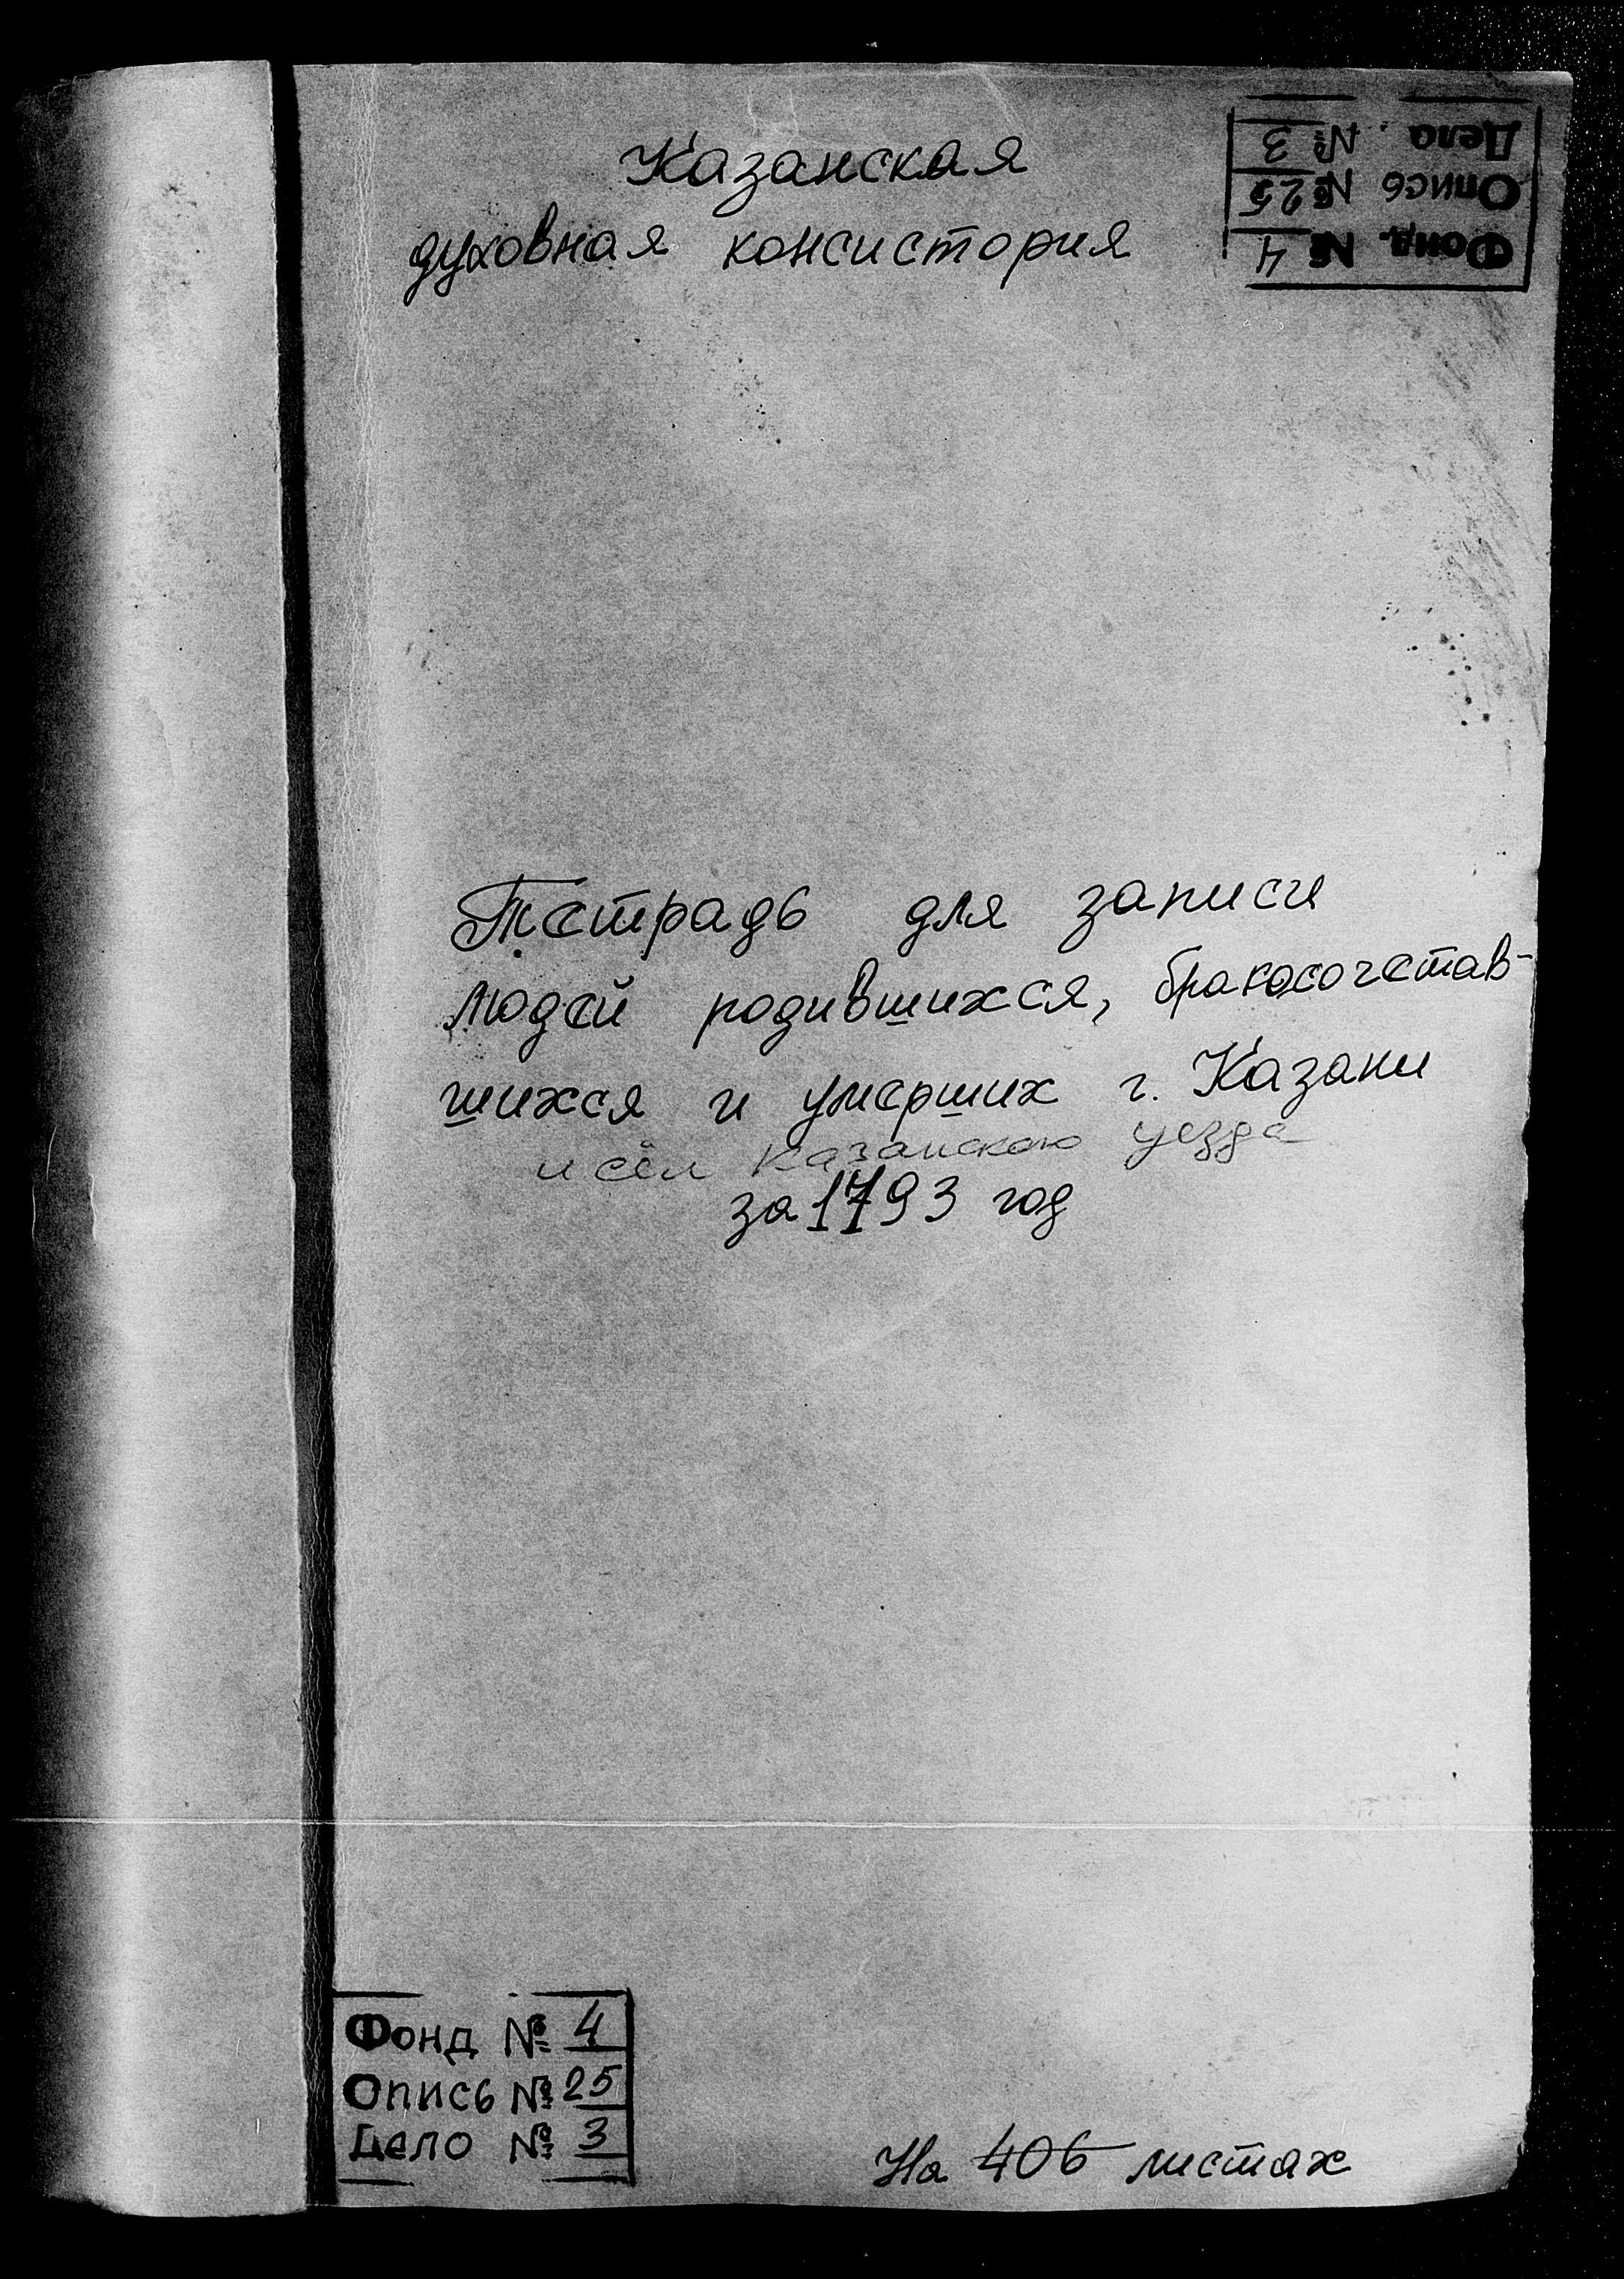 Казанская
духовная консистория
Фонд. № 4
Опись № 25
Дело № 3
Тетрадь для записи
людей родившихся, бракосочетав-
шихся и умерших г. Казани
и сёл Казанского уезда
за 1793 год
Фонд № 4
Опись № 25
Дело № 3
На 406 листах